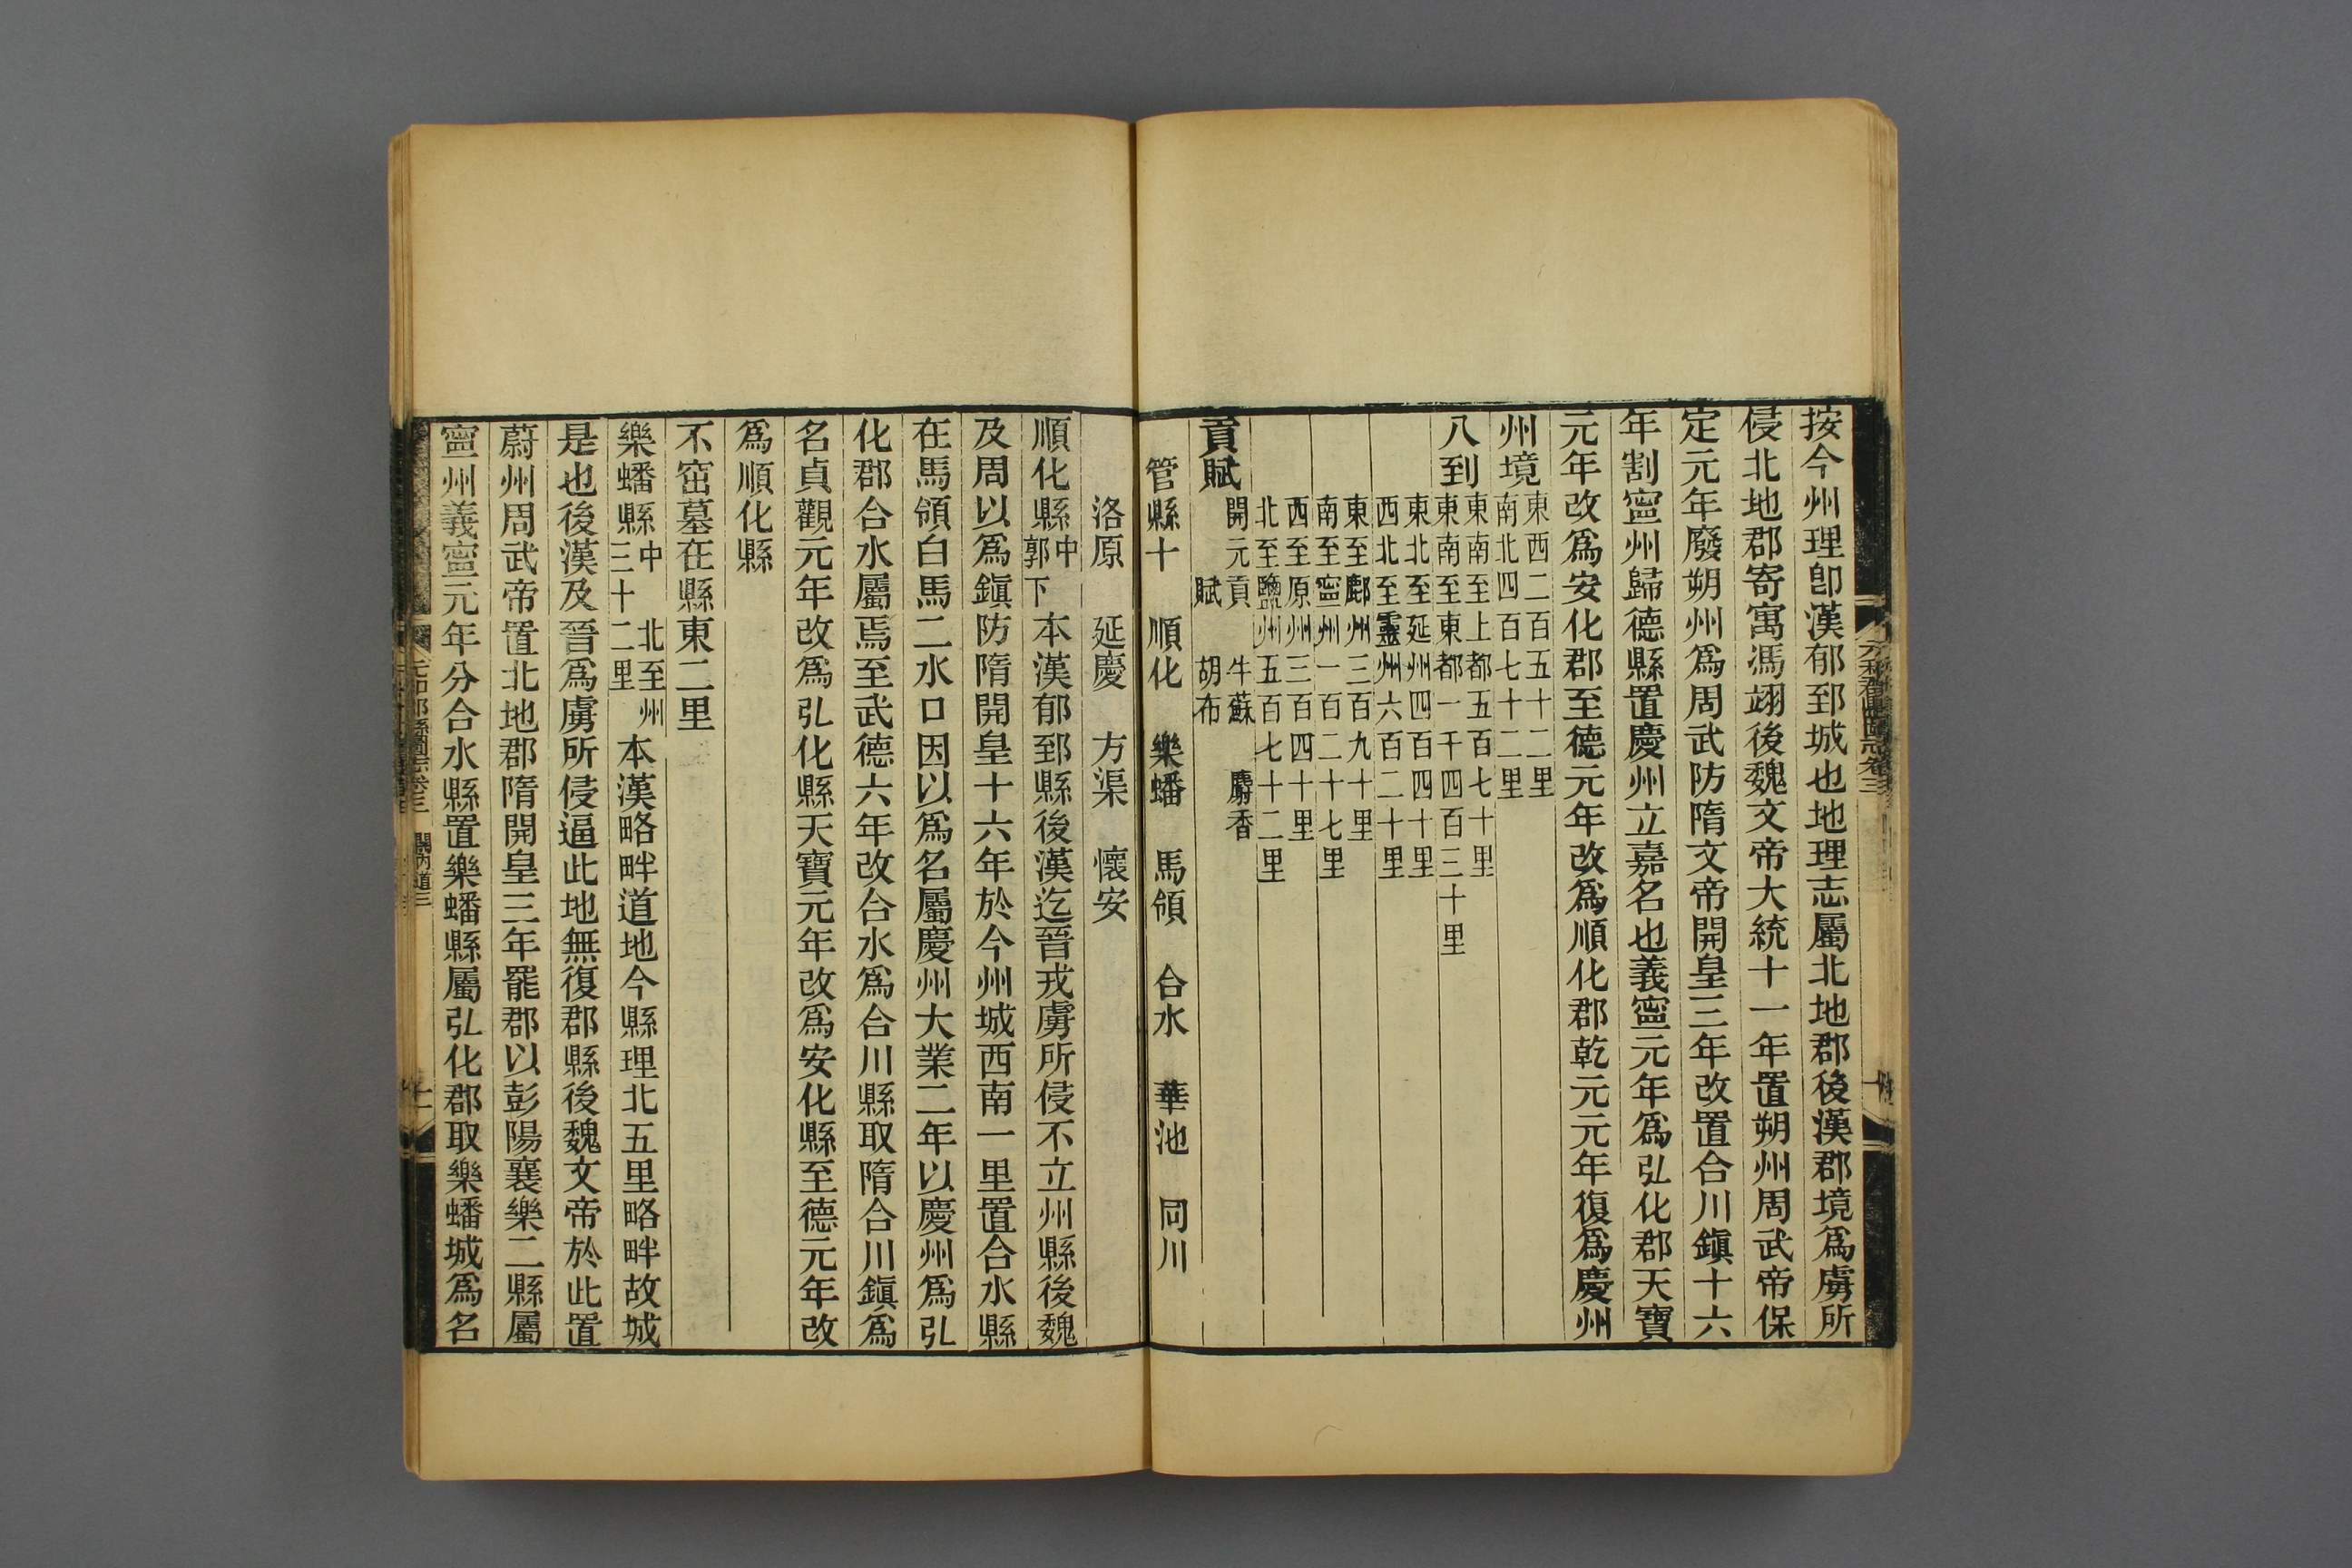 按今州理卽漢郁郅城也地理志屬北地郡後漢郡境爲虜所
侵北地郡寄寓馮翊後魏文帝大統十一年置朔州周武帝保
定元年廢朔州爲周武防隋文帝開皇三年改置合川鎭十六
年割寧州歸德縣置慶州立嘉名也義寧元年爲弘化郡天寶
元年改爲安化郡至德元年改爲順化郡乾元元年復爲慶州
州境東西二百五十二里
南北四百七十二里
八到東南至上都五百七十里
東南至東都一千四百三十里
東北至延州四百四十里
西北至靈州六百二十里
東至鄜州三百九十里
南至寧州一百二十七里
西至原州三百四十里
北至鹽州五百七十二里
貢賦開元貢 牛蘇 麝香
賦 胡布
管縣十 順化 樂蟠 馬領 合水 華池 同川
洛原 延慶 方渠 懷安
順化縣中
郭下
本漢郁郅縣後漢迄晉戎虜所侵不立州縣後魏
及周以爲鎭防隋開皇十六年於今州城西南一里置合水縣
在馬領白馬二水口因以爲名屬慶州大業二年以慶州爲弘
化郡合水屬焉至武德六年改合水爲合川縣取隋合川鎭爲
名貞觀元年改爲弘化縣天寶元年改爲安化縣至德元年改
爲順化縣
不窋墓在縣東二里
樂蟠縣中 北至州
三十二里
本漢略畔道地今縣理北五里略畔故城
是也後漢及晉爲虜所侵逼此地無復郡縣後魏文帝於此置
蔚州周武帝置北地郡隋開皇三年罷郡以彭陽襄樂二縣屬
寧州義寧元年分合水縣置樂蟠縣屬弘化郡取樂蟠城爲名